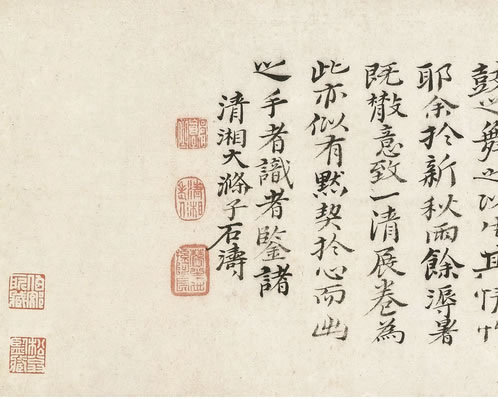 鼓之舞之以生
耶余於新秋雨餘溽暑
既散意致一清展卷為
此亦似有默契於心而出
之手者識者鑒諸
清湘大滌子石濤
清湘老人